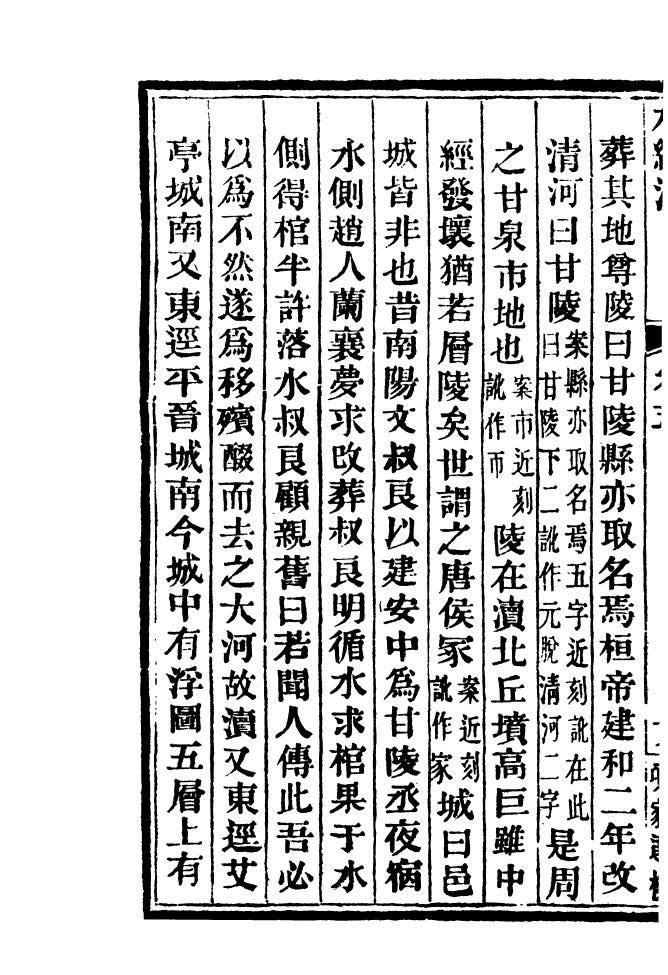 葬其地尊陵曰甘陵縣亦取名焉桓帝建和二年改
清河曰甘陵案縣亦取名焉五字近刻訛在此曰甘陵下二訛作元脫清河二字是周
之甘泉市地也案市近刻訛作而陵在瀆北丘墳高巨雖中
經發壞猶若層陵矣世謂之唐侯冢案近刻訛作家城曰邑
城皆非也昔南陽文叔良以建安中爲甘陵丞夜宿
水側趙人蘭襄夢求改葬叔良明循水求棺果于水
側得棺半許落水叔良顧親舊曰若聞人傳此吾必
以爲不然遂爲移殯醊而去之大河故瀆又東逕艾
亭城南又東逕平晉城南今城中有浮圖五層上有